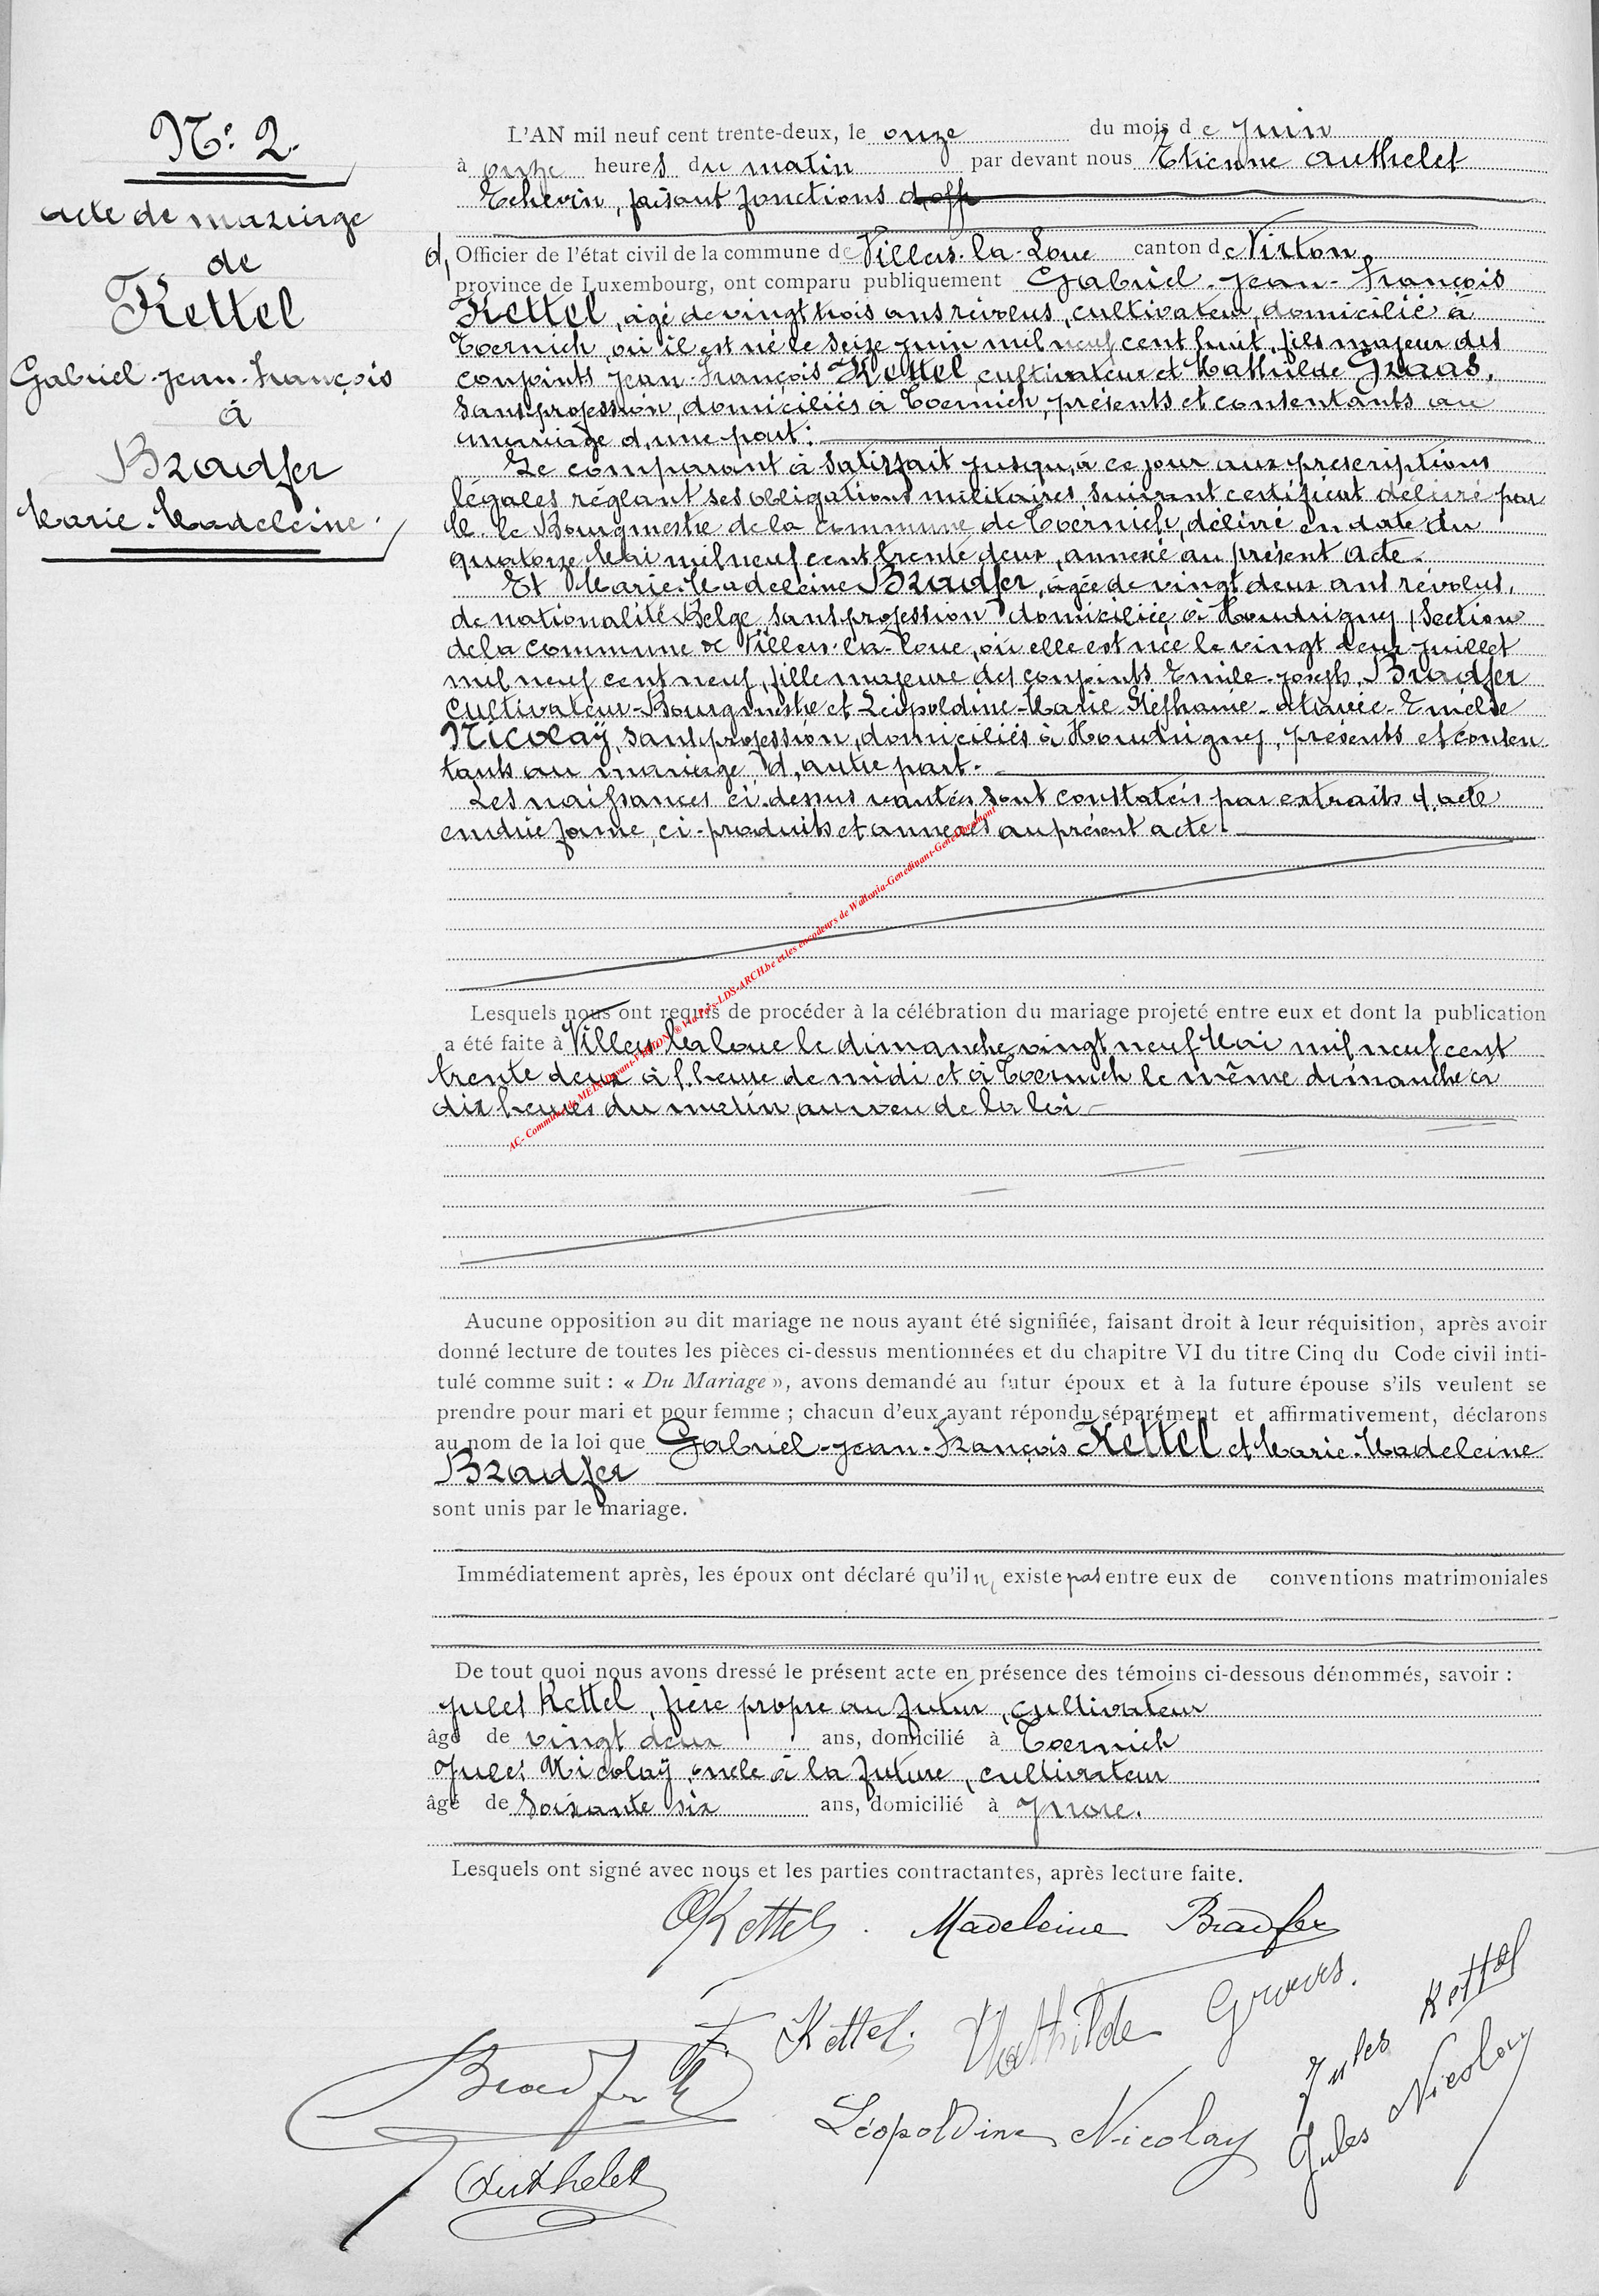 N°: 2.
acte de mariage
de
Kettel
Gabriel-Jean-François
à
Bradfer
Marie-Madeleine
L'AN mil neuf cent trente-deux, le onze du mois de Juin
à onze heures du matin par devant nous Etienne Authelet
Echevin, faisant fonctions
d, Officier de l'état civil de la commune de Villers-la-Loue canton de Virton
province de Luxembourg, ont comparu publiquement Gabriel-Jean-François
Kettel, âgé de vingt trois ans révolus, cultivateur, domicilié à
Toernich, où il est né le seize juin mil neuf cent huit, fils majeur des
conjoints Jean-François Kettel, cultivateur et Mathilde Graas,
sans profession, domiciliés à Toernich, présents et consentants au
mariage d,une part:
Le comparant à satisfait jusqu,à ce jour aux prescriptions
légales réglant ses obligations militaires suivant certificat délivré par
M. le Bourgmestre de la commune de Toernich, délivré en date du
quatorze Mai mil neuf cent trente deux, annexé au présent acte.
Et Marie-Madeleine Bradfer, âgée de vingt deux ans révolus,
de nationalité Belge, sans profession domiciliée à Houdrigny, section
de la commune de Villers-la-Loue, où elle est née le vingt deux juillet
mil neuf cent neuf, fille majeure des conjoints Emile-Joseph Bradfer
Cultivateur-Bourgmestre et Léopoldine-Marie Stéphanie Emélie
Nicolay, sans profession, domiciliés à Houdrigny, présents et consen-
tants au mariage d,autre part.
Les naissances ci-dessus vantées sont constatées par extraits d,acte
en due forme, ci-produits et annexés au présent acte.
Lesquels nous ont requis de procéder à la célébration du mariage projeté entre eux et dont la publication
a été faite à Villers la loue le dimanche vingt neuf Mai mil neuf cent
trente deux à l,heure de midi et à Toernich le même dimanche à
dix heures du matin, au vœu de la loi
AC- Commune de MEIX-Devant-VIRTON-® Via Pays-LDS-ARCH.be et les encodeurs de Wallonia-Genedinant-Gene
Aucune opposition au dit mariage ne nous ayant été signifiée, faisant droit à leur réquisition, après avoir
donné lecture de toutes les pièces ci-dessus mentionnées et du chapitre VI du titre Cinq du Code civil inti-
tulé comme suit : « Du Mariage », avons demandé au futur époux et à la future épouse s'ils veulent se
prendre pour mari et pour femme ; chacun d'eux ayant répondu séparément et affirmativement, déclarons
au nom de la loi que Gabriel-Jean-François Kettel et Marie-Madeleine
Bradfer
sont unis par le mariage.
Immédiatement après, les époux ont déclaré qu'il n, existe pas entre eux de conventions matrimoniales
De tout quoi nous avons dressé le présent acte en présence des témoins ci-dessous dénommés, savoir :
Jules Kettel, frère propre au futur, cultivateur
âgé de vingt deux ans, domicilié à Toernich
Jules Nicolaÿ, oncle à la future, cultivateur
âgé de soixante six ans, domicilié à
Lesquels ont signé avec nous et les parties contractantes, après lecture faite.
Kettel. Madeleine Bradfer
F. Kettel. Mathilde Graas.
Jules Kettel
Bradfer E
Léopoldine Nicolay
Jules Nicolay
Authelet